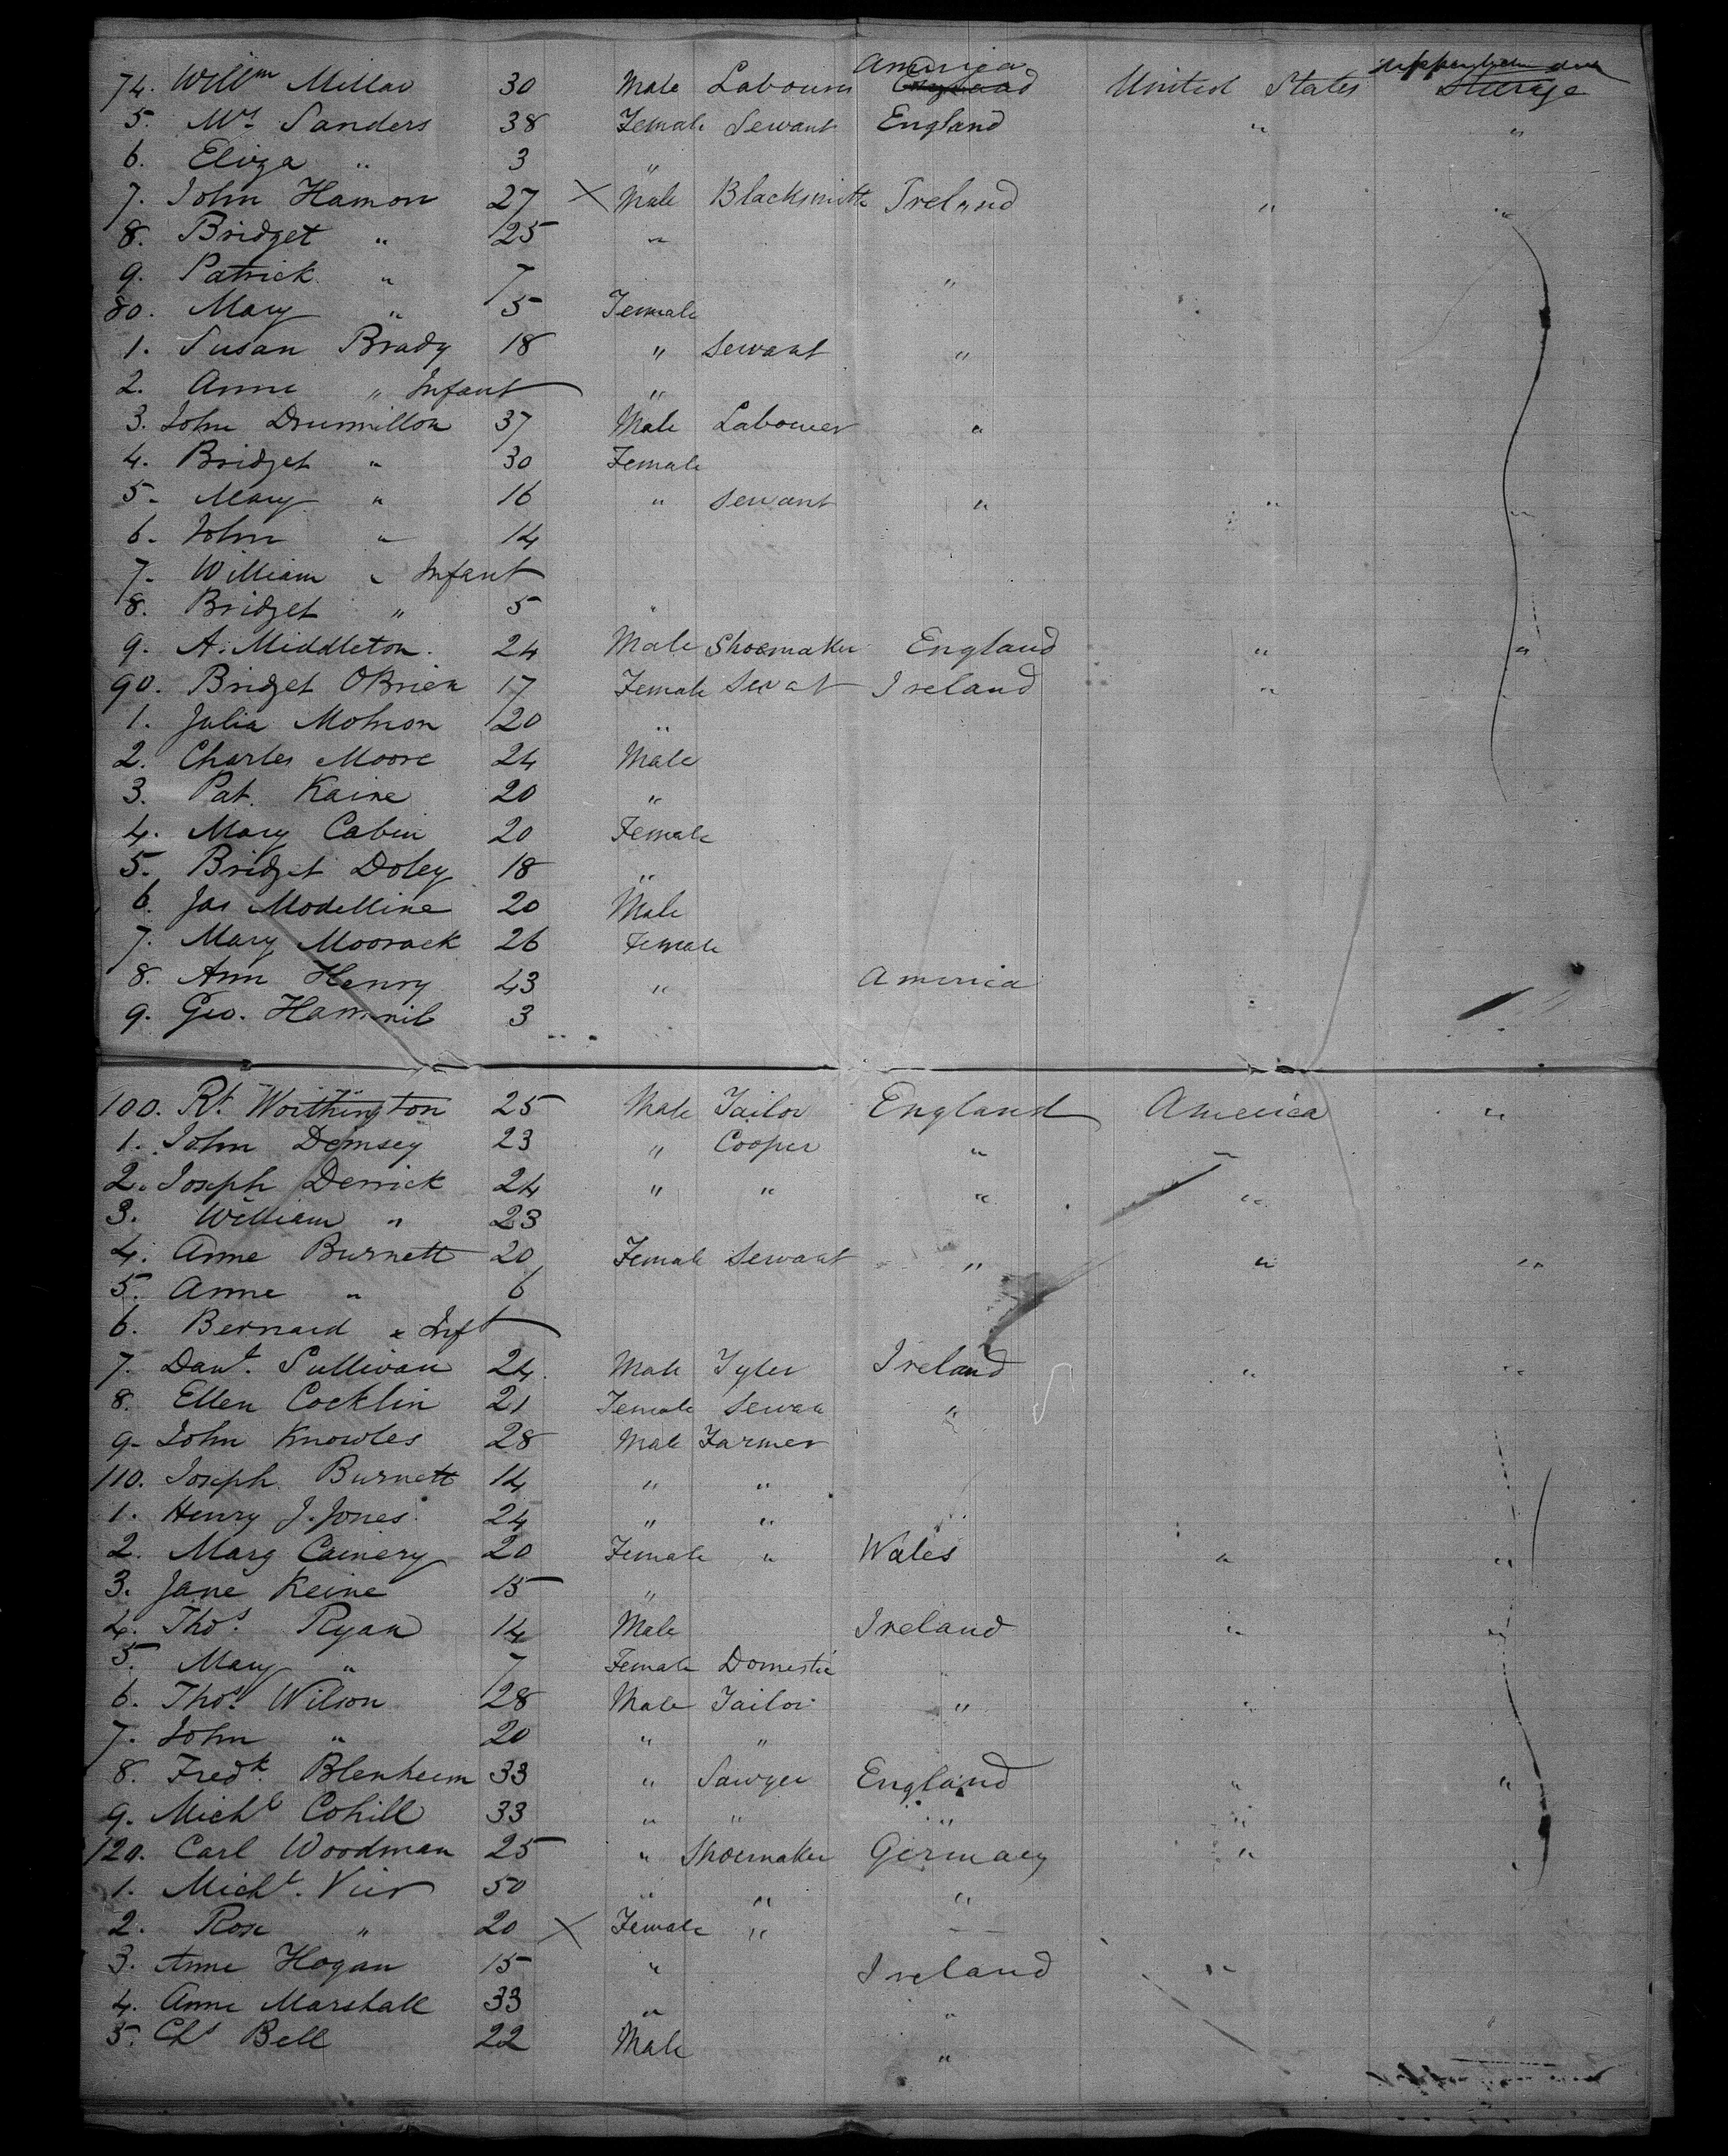 74. Willm Millar 30 Male Labourer America England United States Steerage
5. Mrs Sanders 38 Female Servant England " "
6. Eliza " 3 "
7. John Hamon 27 X Male Blacksmith Ireland " "
8. Bridget " 25 "
9. Patrick " 7 "
80. Mary " 5 Female
1. Susan Brady 18 " Servant "
2. Anne " Infant "
3. John Drumillon 37 Male Labourer "
4. Bridget " 30 Female
5. Mary " 16 " Servant " " "
6. John " 14
7. William " Infant
8. Bridget " 5 "
9. A. Middleton 24 Male Shoemaker England " "
90. Bridget OBrien 17 Female Servat Ireland "
1. Julia Mohon 20 "
2. Charles Moore 24 Male
3. Pat. Kaine 20 "
4. Mary Cabin 20 Female
5. Bridget Doley 18 "
6. Jas Modelline 20 Male
7. Mary Moorack 26 Female
8. Ann Henry 43 " America
9. Geo. Hamnil 3
100. Rt. Worthington 25 Male Tailor England America "
1. John Demsey 23 " Cooper " "
2. Joseph Derrick 24 " " " "
3. William " 23
4. Anne Burnett 20 Female Servant " " "
5. Anne " 6
6. Bernard " Inft
7. Danl. Sullivan 24 Male Tyler Ireland " "
8. Ellen Cocklin 21 Female Servan "
9. John Knowles 28 Male Farmer
110. Joseph Burnett 14 " "
1. Henry J. Jones 24 " " "
2. Marg Cainery 20 Female " Wales " "
3. Jane Keine 15 "
4. Thos. Ryan 14 Male Ireland " "
5. Mary " 7 Female Domestic "
6. Thos. Wilson 28 Male Tailor " "
7. John " 20 " "
8. Fredk. Blenheim 33 " Sawyer England " "
9. Michl Cohill 33 " " " "
120. Carl Woodman 25 " Shoemaker Germany "
1. Michl. Vier 50 " " "
2. Rose " 20 X Female "
3. Anne Hogan 15 " Ireland "
4. Anne Marshall 33 " "
5. Chs Bell 22 Male "